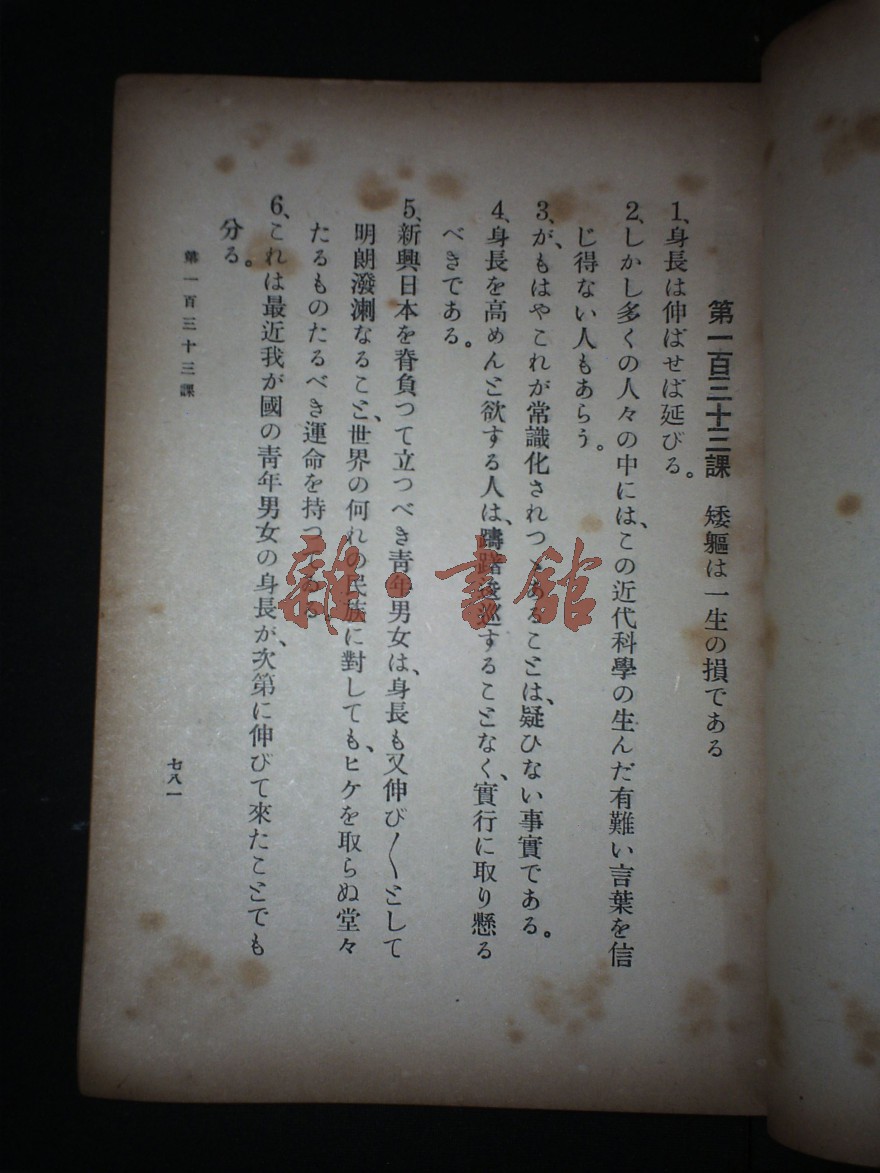 第一百三十三課　矮軀は一生の損である
1、身長は伸ばせば延びる。
2、しかし多くの人々の中には、この近代科學の生んだ有難い言葉を信
じ得ない人もあらう。
3、が、もはやこれが常識化されつゝあることは、疑ひない事實である。
4、身長を高めんと欲する人は、躊躇逡巡することなく、實行に取り懸る
べきである。
5、新興日本を脊負つて立つべき靑年男女は、身長も又伸び〱として
明朗潑溂なること、世界の何れの民族に對しても、ヒケを取らぬ堂々
たるものたるべき運命を持つてゐる
6、これは最近我が國の靑年男女の身長が、次第に伸びて來たことでも
分る。
第一百三十三課
七八一
雜·書館